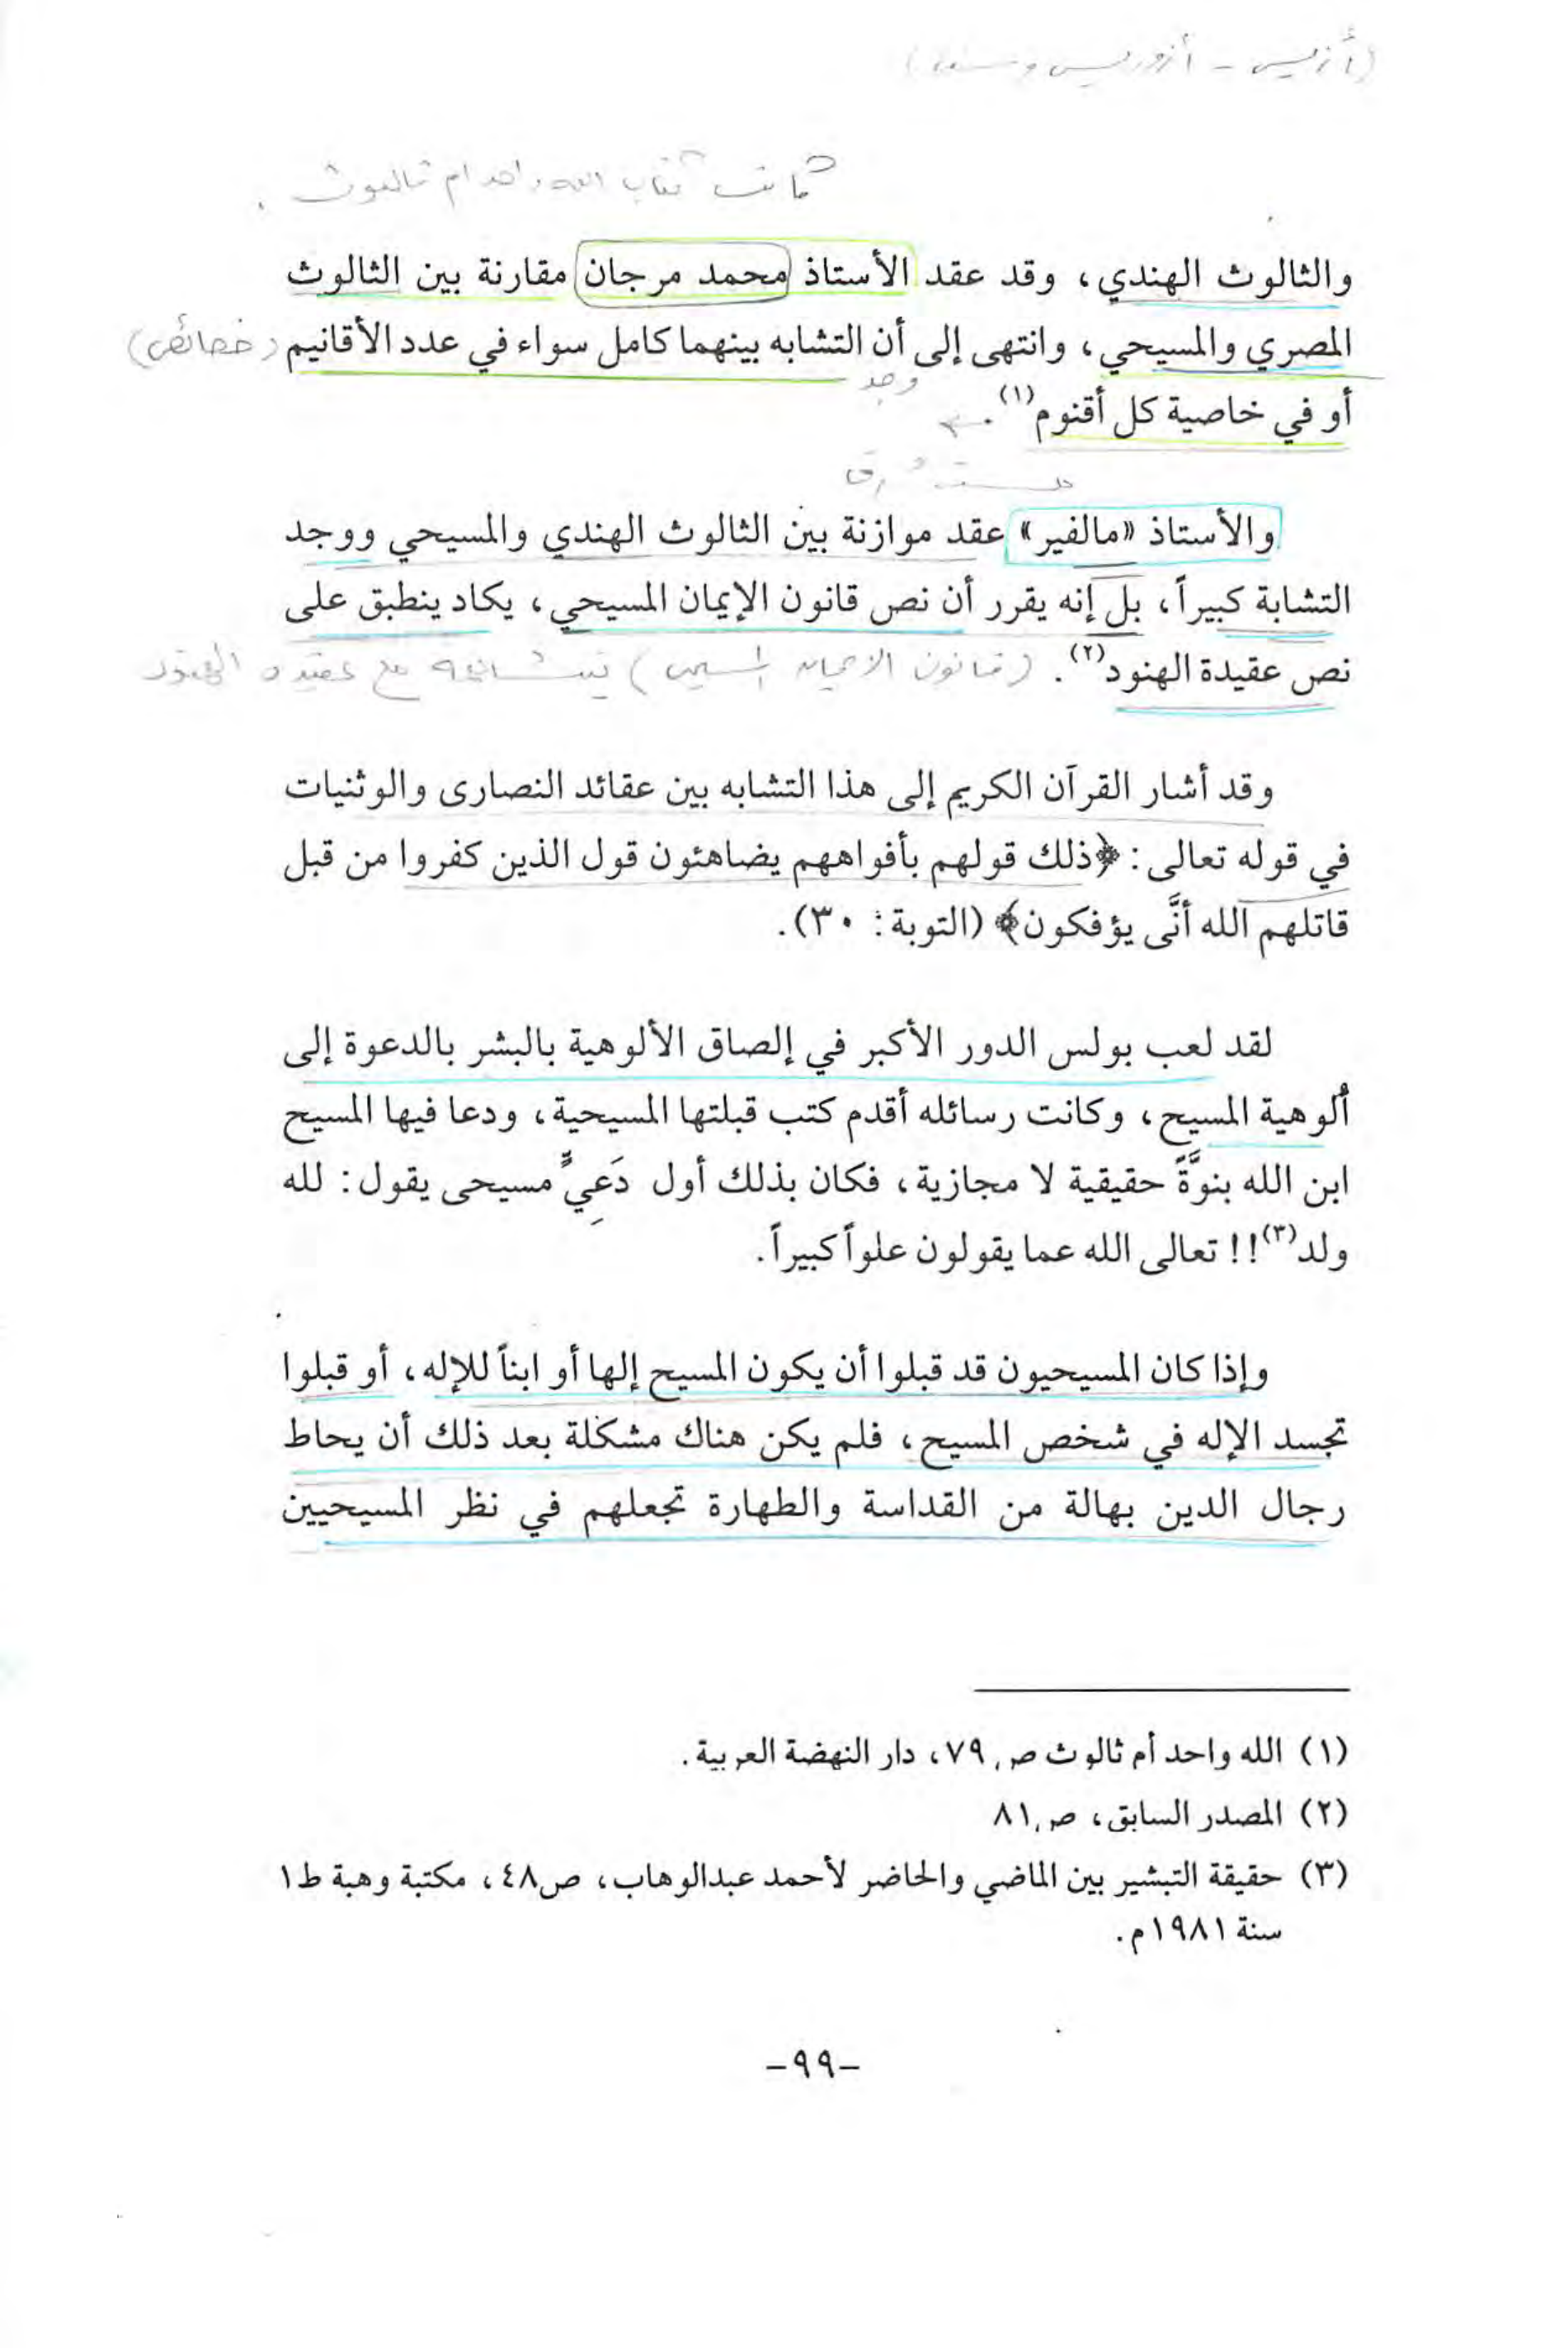 (أزيس - أزوريس و
كاتب كتاب الله واحد أم ثالوث .
والثالوث الهندي، وقد عقد الأستاذ محمد مرجان مقارنة بين الثالوث
المصري والمسيحي، وانتهى إلى أن التشابه بينهما كامل سواء في عدد الأقانيم (خصائص)
وجد
أو في خاصية كل أقنوم(١).
مستشرق
والأستاذ «مالفير» عقد موازنة بين الثالوث الهندي والمسيحي ووجد
التشابة كبيراً، بل إنه يقرر أن نص قانون الإيمان المسيحي، يكاد ينطبق على
نص عقيدة الهنود(٢). (قانون الايمان المسيحي) يتشابه مع عقيدة الهنود
وقد أشار القرآن الكريم إلى هذا التشابه بين عقائد النصارى والوثنيات
في قوله تعالى: ﴿ذلك قولهم بأفواههم يضاهئون قول الذين كفروا من قبل
قاتلهم الله أنَّى يؤفكون﴾ (التوبة: ٣٠).
لقد لعب بولس الدور الأكبر في إلصاق الألوهية بالبشر بالدعوة إلى
ألوهية المسيح، وكانت رسائله أقدم كتب قبلتها المسيحية، ودعا فيها المسيح
ابن الله بنوَّةً حقيقية لا مجازية، فكان بذلك أول دَعِيٍّ مسيحى يقول: لله
ولد(٣)!! تعالى الله عما يقولون علواً كبيراً.
وإذا كان المسيحيون قد قبلوا أن يكون المسيح إلها أو ابناً للإله، أو قبلوا
تجسد الإله في شخص المسيح، فلم يكن هناك مشكلة بعد ذلك أن يحاط
رجال الدين بهالة من القداسة والطهارة تجعلهم في نظر المسيحيين
(١) الله واحد أم ثالوث ص ٧٩، دار النهضة العربية.
(٢) المصدر السابق، ص ٨١
(٣) حقيقة التبشير بين الماضي والحاضر لأحمد عبدالوهاب، ص٤٨، مكتبة وهبة ط١
سنة ١٩٨١م.
-٩٩-